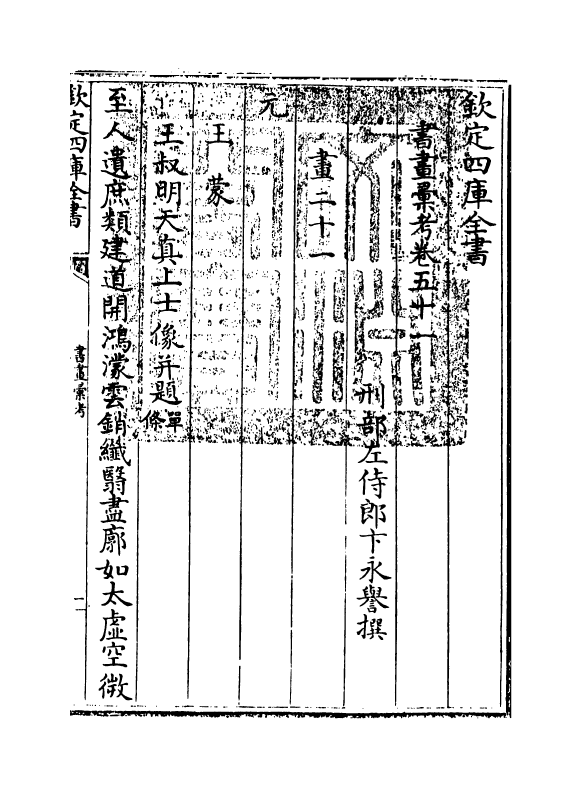 欽定四庫全書
書畫彚考卷五十一
刑部左侍郎卞永譽撰
畫二十一
元
王蒙
王叔明天真上士像并題單條
至人遺庶類建道開鴻濛雲銷纖翳盡廓如太虛空微
欽定四庫全書
書畫彚考